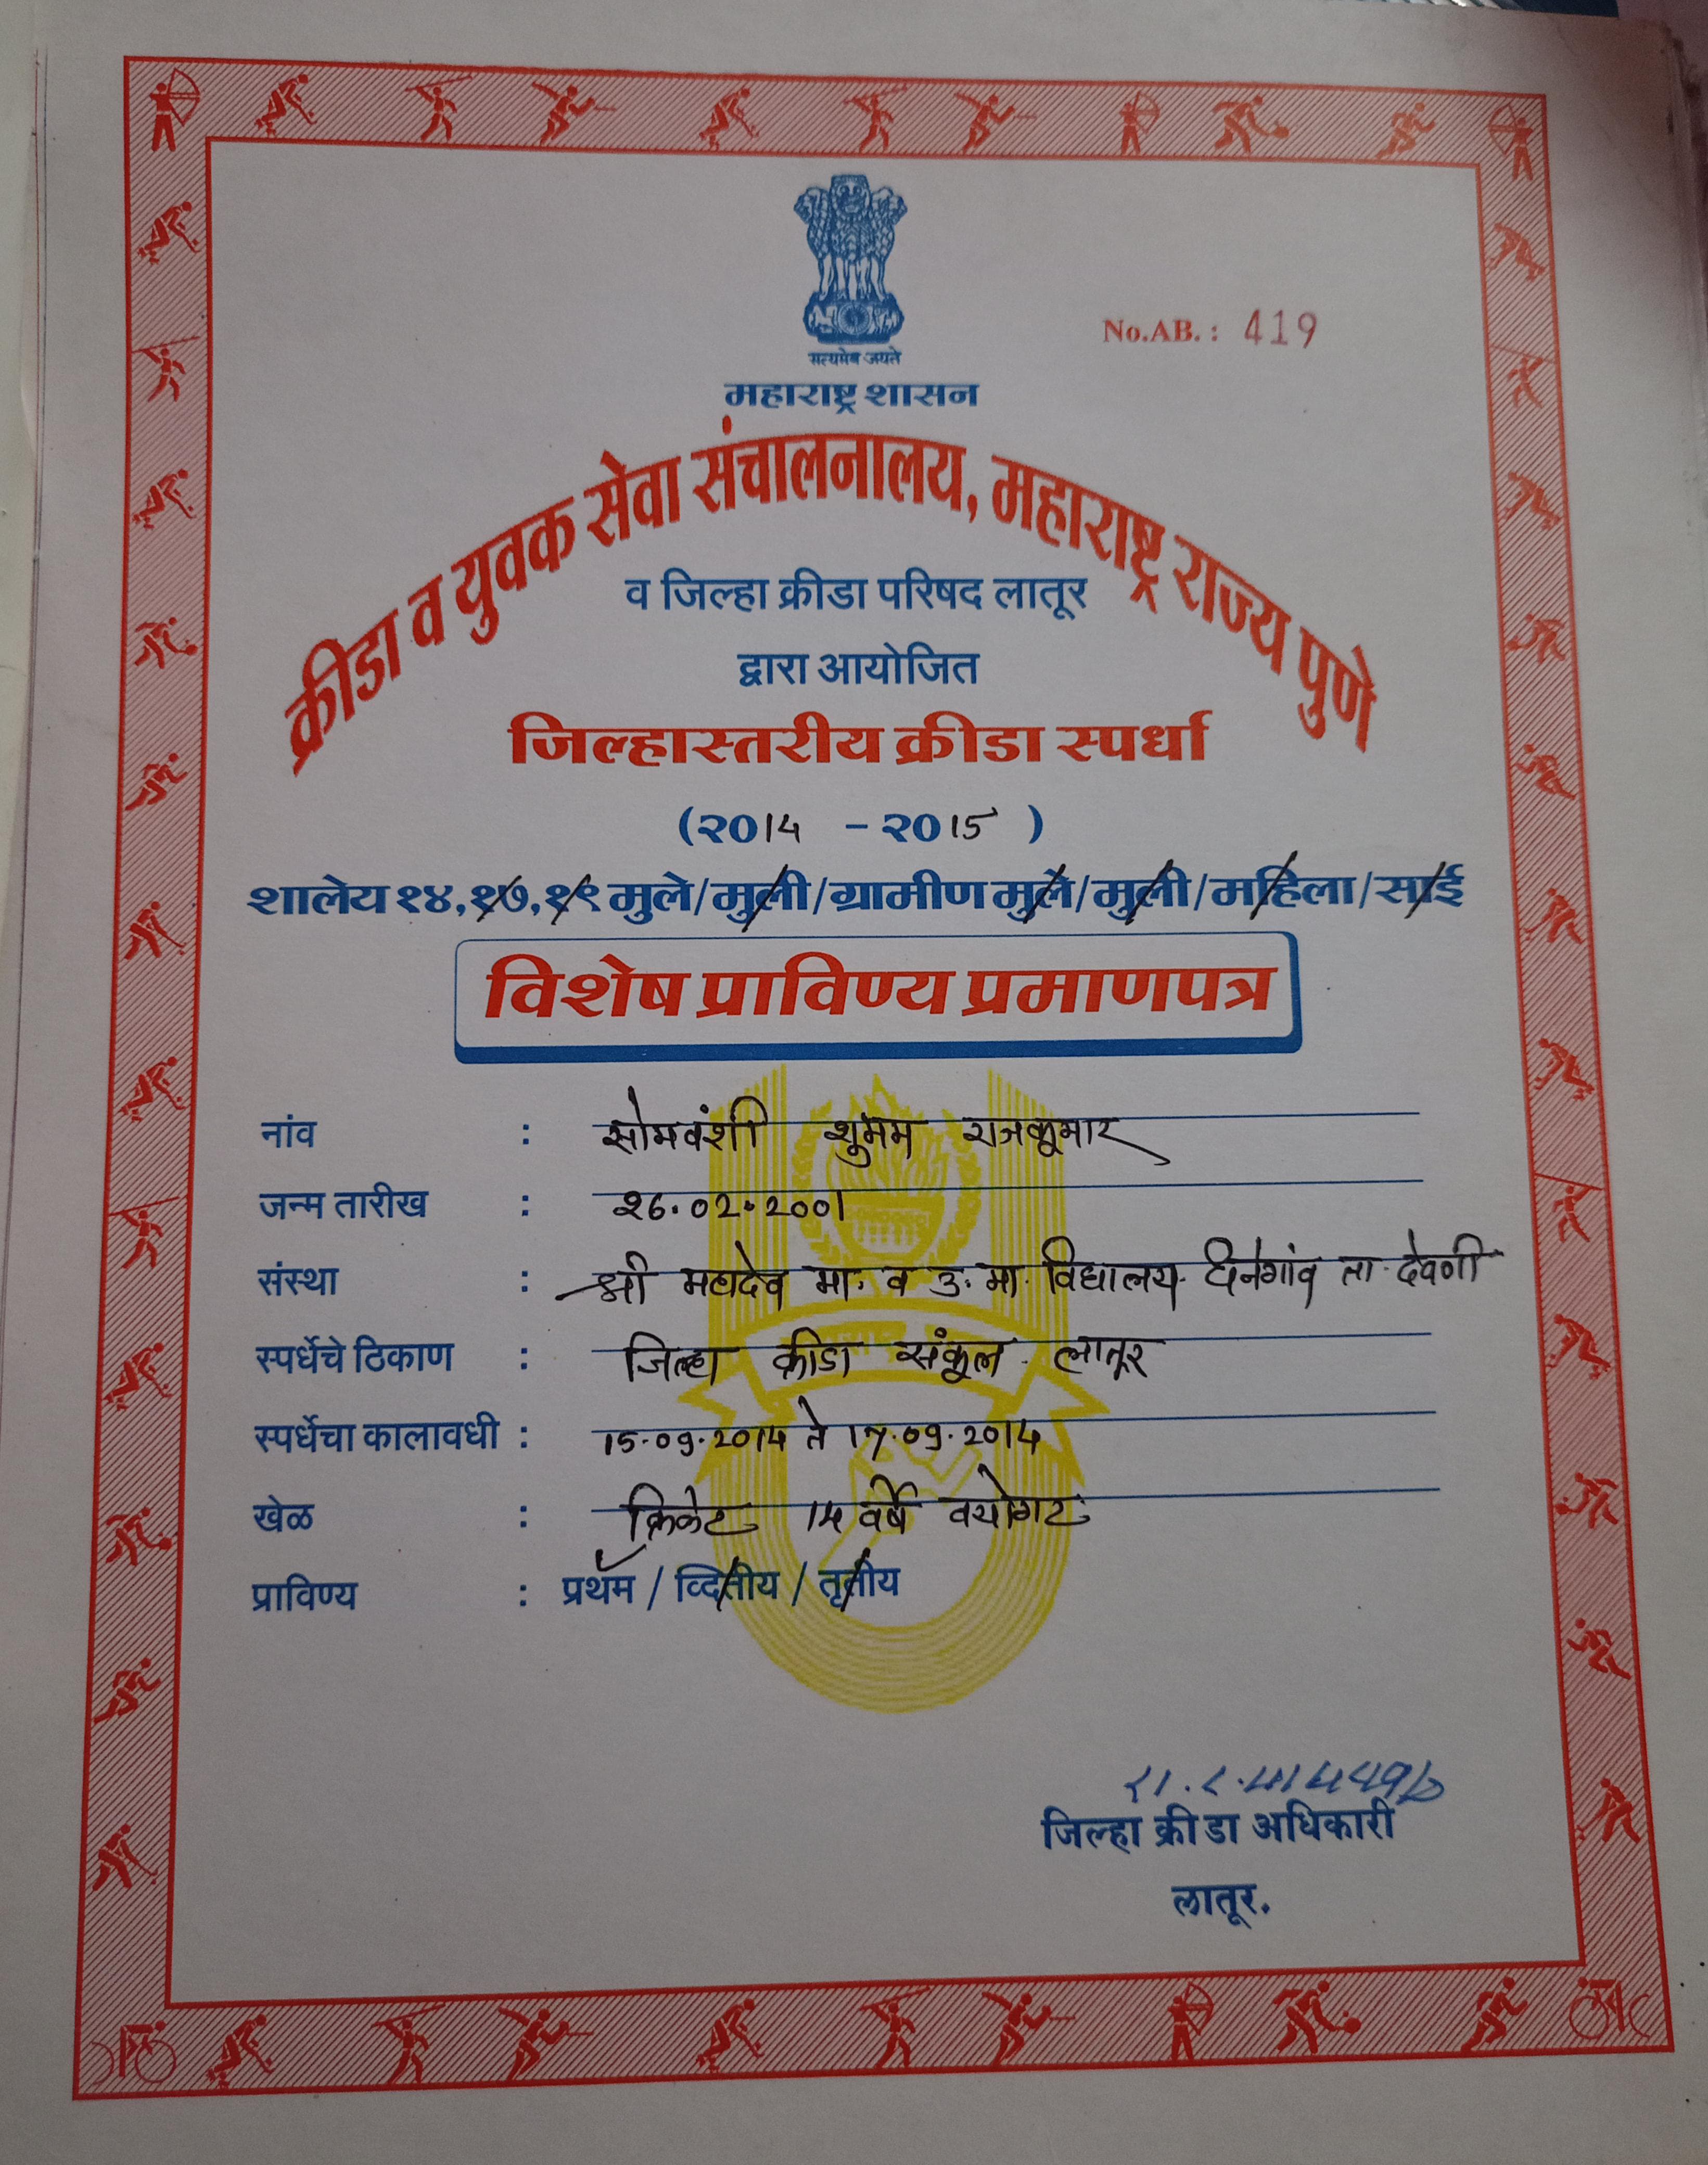 सत्यमेव जयते
No.AB. : 419
महाराष्ट्र शासन
क्रीडा व युवक सेवा संचालनालय, महाराष्ट्र राज्य पुणे
व जिल्हा क्रीडा परिषद लातूर
द्वारा आयोजित
जिल्हास्तरीय क्रीडा स्पर्धा
(२०14 - २०15 )
शालेय १४,१७,१९ मुले/मुली/ग्रामीण मुले/मुली/महिला/साई
विशेष प्राविण्य प्रमाणपत्र
नांव : सोमवंशी शुभम राजकूमार
जन्म तारीख : 26.02.2001
संस्था : श्री महादेव मा. व उ. मा. विद्यालय. दिनेगांव ता. देवणी
स्पर्धेचे ठिकाण : जिल्हा क्रीडा संकूल. लातूर
स्पर्धेचा कालावधी : 15.09.2014 ते 17.09.2014
खेळ : क्रिकेट 14 वर्षे वयोगट
प्राविण्य : प्रथम / व्दितीय / तृतीय
जिल्हा क्रीडा अधिकारी
लातूर.